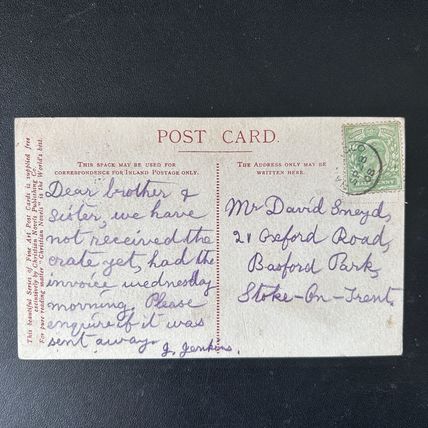 POST CARD.
THIS SPACE MAY BE USED FOR
CORRESPONDENCE FOR INLAND POSTAGE ONLY.
THE ADDRESS ONLY MAY BE
WRITTEN HERE.
Dear brother &
Sister, we have
not received the
crate yet, had the
invoice wednesday
morning. Please
enquire if it was
sent away.
J. Jenkins.
Mr David Sneyd,
21 Oxford Road,
Basford Park,
Stoke-On-Trent.
This beautiful Series of Fine Art Post Cards is supplied free
exclusively by Christian Novels Publishing Co.
For pure reading, "Christian Novels" is the World's best.